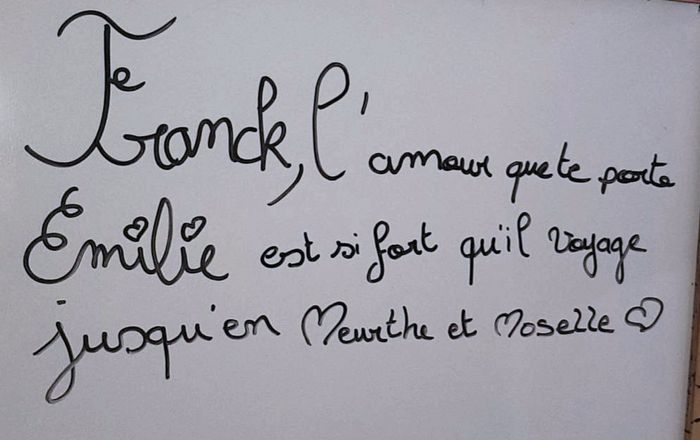 Franck, l'amour que te porte
Emilie est si fort qu'il voyage
jusqu'en Meurthe et Moselle ♡